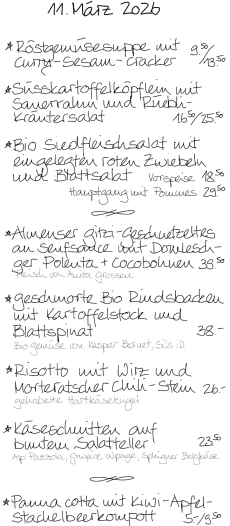 11. März 2026
* Röstgemüsesuppe mit 9.50/
Curry-Sesam-Cracker 13.50
* Süsskartoffelköpflein mit
Sauerrahm und Rüebli-
Kräutersalat 16.50/25.50
* Bio Siedfleischsalat mit
eingelegten roten Zwiebeln
und Blattsalat Vorspeise 18.50
Hauptgang mit Pommes 29.50
* Almenser Gitzi-Geschnetzeltes
an Senfsauce mit Domlesch-
ger Polenta + Cocobohnen 39.50
Fleisch von Anita Grossen
* geschmorte Bio Rindsbacken
mit Kartoffelstock und
Blattspinat 38.-
Bio gemüse von Kaspar Beruet, Sils iD
* Risotto mit Wirz und
Morteratscher Chili-Stein 26.-
gehobelte Hartkäsekugel
* Käseschnitten auf
buntem Salatteller 23.50
Alp Pazzola, Gruyère alpage, Splügner Bergkäse
* Panna cotta mit Kiwi-Apfel-
Stachelbeerkompott 5.-/9.50